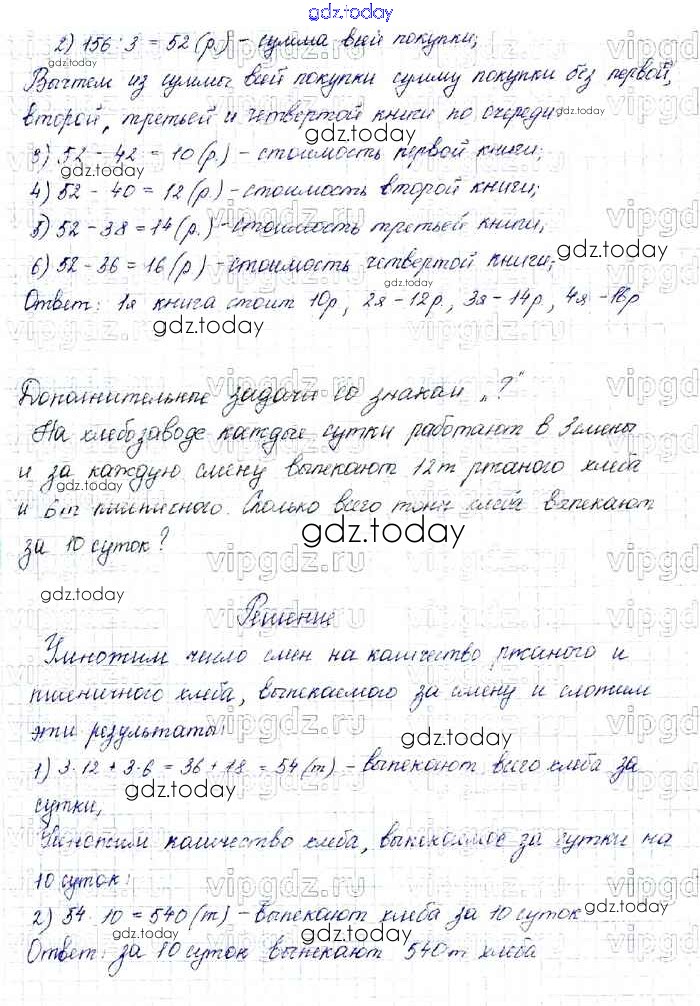 gdz.today
2) 156 : 3 = 52 (р.) - сумма всей покупки;
Вычтем из суммы всей покупки сумму покупки без первой,
второй, третьей и четвертой книги по очереди
3) 52 - 42 = 10 (р.) - стоимость первой книги;
4) 52 - 40 = 12 (р) - стоимость второй книги;
5) 52 - 38 = 14 (р.) - стоимость третьей книги;
6) 52 - 36 = 16 (р) - стоимость четвертой книги;
Ответ: 1я книга стоит 10р, 2я - 12р, 3я - 14р, 4я - 16р
Дополнительные задачи со знаком „?"
На хлебозаводе каждые сутки работают в 3 смены
и за каждую смену выпекают 12т ржаного хлеба
и 6т пшеничного. Сколько всего тонн хлеба выпекают
за 10 суток?
Решение
Умножим число смен на количество ржаного и
пшеничного хлеба, выпекаемого за смену и сложим
эти результаты:
1) 3 · 12 + 3 · 6 = 36 + 18 = 54 (т) - выпекают всего хлеба за
сутки,
Умножим количество хлеба, выпекаемое за сутки на
10 суток:
2) 54 · 10 = 540 (т) - выпекают хлеба за 10 суток
Ответ: за 10 суток выпекают 540т хлеба